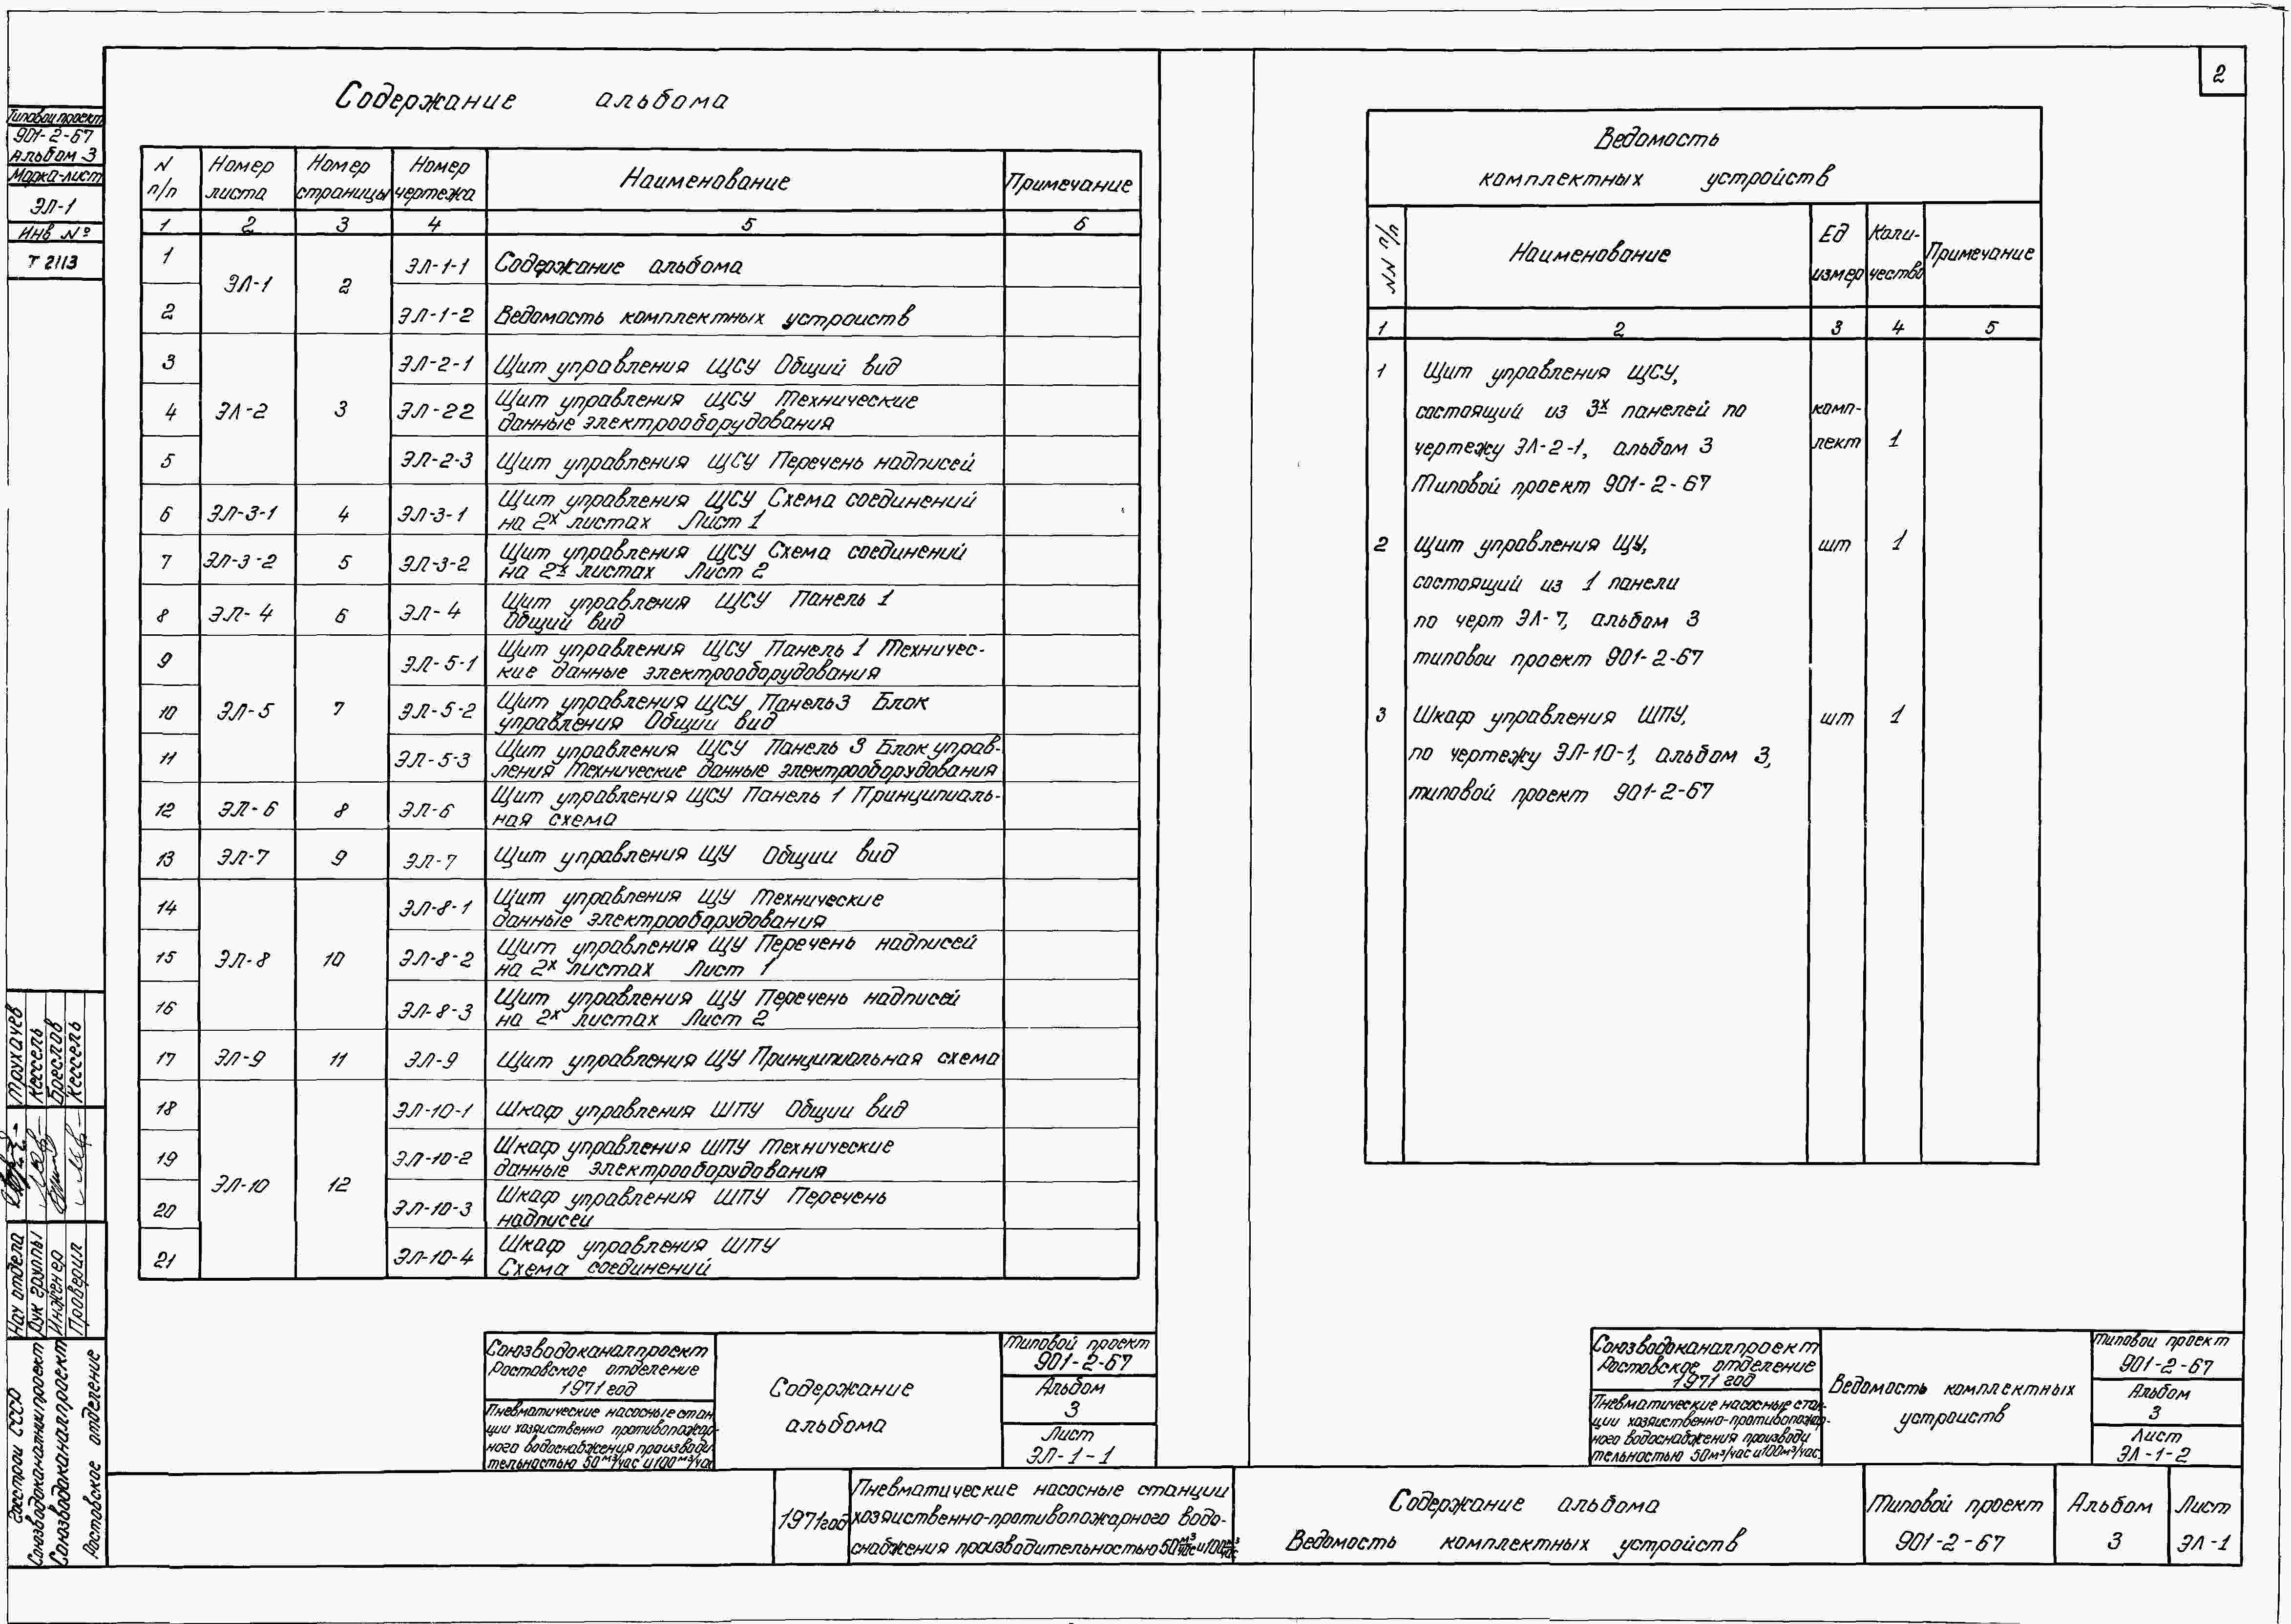 2
Типовой проект
901-2-67
Альбом 3
Марка-лист
ЭЛ-1
Инв №
Т 2113
Содержание альбома
N п/п | Номер листа | Номер страницы | Номер чертежа | Наименование | Примечание
1 | 2 | 3 | 4 | 5 | 6
1 | ЭЛ-1 | 2 | ЭЛ-1-1 | Содержание альбома
2 | ЭЛ-1-2 | Ведомость комплектных устроиств
3 | ЭЛ-2-1 | Щит управления ЩСУ Общий вид
4 | ЭЛ-2 | 3 | ЭЛ-22 | Щит управления ЩСУ Технические
данные электрооборудования
5 | ЭЛ-2-3 | Щит управления ЩСУ Перечень надписей
6 | ЭЛ-3-1 | 4 | ЭЛ-3-1 | Щит управления ЩСУ Схема соединений
на 2х листах Лист 1
7 | ЭЛ-3-2 | 5 | ЭЛ-3-2 | Щит управления ЩСУ Схема соединений
на 2х листах Лист 2
8 | ЭЛ-4 | 6 | ЭЛ-4 | Щит управления ЩСУ Панель 1
Общий вид
9 | ЭЛ-5-1 | Щит управления ЩСУ Панель 1 Техничес-
кие данные электрооборудования
10 | ЭЛ-5 | 7 | ЭЛ-5-2 | Щит управления ЩСУ Панель 3 Блок
управления Общии вид
11 | ЭЛ-5-3 | Щит управления ЩСУ Панель 3 Блок управ-
ления Технические данные электрооборудования
12 | ЭЛ-6 | 8 | ЭЛ-6 | Щит управления ЩСУ Панель 1 Принципиаль-
ная схема
13 | ЭЛ-7 | 9 | ЭЛ-7 | Щит управления ЩУ Общии вид
14 | ЭЛ-8-1 | Щит управления ЩУ Технические
данные электрооборудования
15 | ЭЛ-8 | 10 | ЭЛ-8-2 | Щит управления ЩУ Перечень надписей
на 2х листах Лист 1
16 | ЭЛ-8-3 | Щит управления ЩУ Перечень надписей
на 2х листах Лист 2
17 | ЭЛ-9 | 11 | ЭЛ-9 | Щит управления ЩУ Принципиальная схема
18 | ЭЛ-10-1 | Шкаф управления ШПУ Общии вид
19 | ЭЛ-10-2 | Шкаф управления ШПУ Технические
данные электрооборудования
ЭЛ-10 | 12
20 | ЭЛ-10-3 | Шкаф управления ШПУ Перечень
надписеи
21 | ЭЛ-10-4 | Шкаф управления ШПУ
Схема соединений
Ведомость
комплектных устройств
NN п/п | Наименование | Ед измер | Коли-чество | Примечание
1 | 2 | 3 | 4 | 5
1 Щит управления ЩСУ,
состоящий из 3х панелей по комп-
чертежу ЭЛ-2-1, альбом 3 лект 1
Типовой проект 901-2-67
2 Щит управления ЩУ, шт 1
состоящий из 1 панели
по черт ЭЛ-7, альбом 3
типовои проект 901-2-67
3 Шкаф управления ШПУ, шт 1
по чертежу ЭЛ-10-1, альбом 3,
типовой проект 901-2-67
Трухачев
Кессель
Бреслав
Кессель
Нач отдела
Рук группы
Инженер
Проверил
Госстрои СССР
Союзводоканалниипроект
Союзводоканалпроект
Ростовское отделение
Союзводоканалпроект
Ростовское отделение
1971 год
Пневматические насосные стан
ции хозяиственно противопожар-
ного водоснабжения производи
тельностью 50 м³/час и 100 м³/час
Содержание
альбома
Типовой проект
901-2-67
Альбом
3
Лист
ЭЛ-1-1
Союзводоканалпроект
Ростовское отделение
1971 год
Пневматические насосные стан-
ции хозяиственно-противопожар-
ного водоснабжения производи
тельностью 50м³/час и 100м³/час
Ведомость комплектных
устроиств
Типовой проект
901-2-67
Альбом
3
Лист
ЭЛ-1-2
1971год
Пневматические насосные станции
хозяиственно-противопожарного водо-
снабжения производительностью 50 м³/час и 100 м³/час
Содержание альбома
Ведомость комплектных устройств
Типовой проект
901-2-67
Альбом
3
Лист
ЭЛ-1